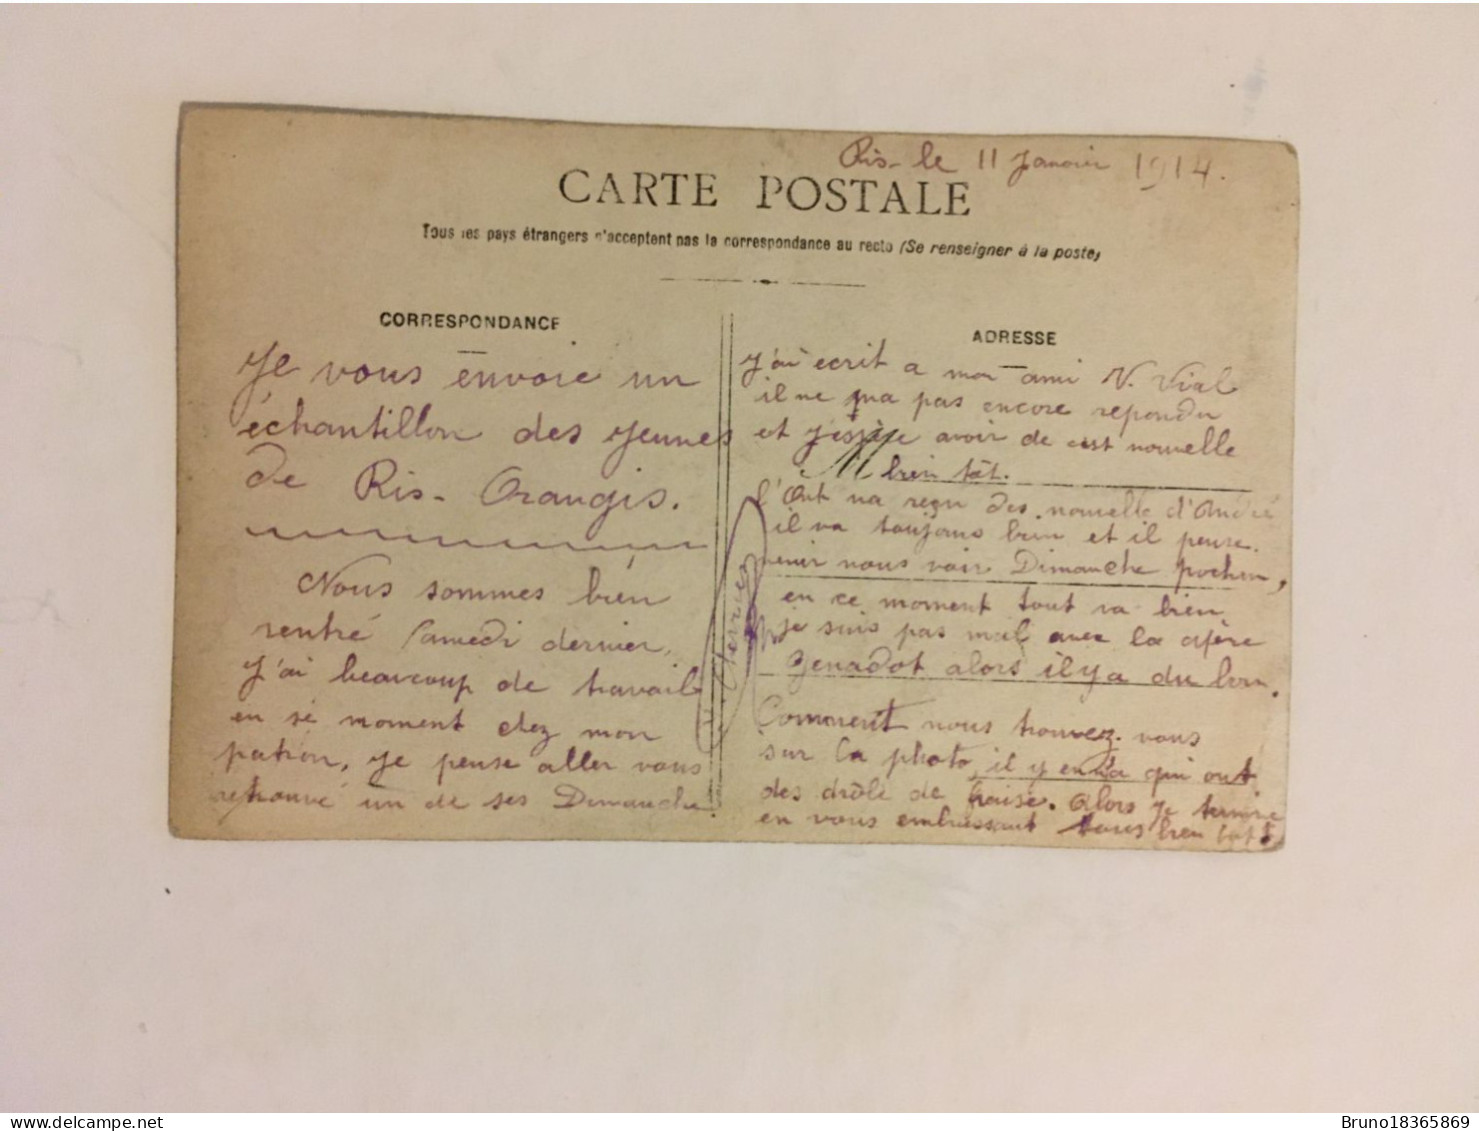 Ris- le 11 Janvier 1914.
CARTE POSTALE
Tous les pays étrangers n'acceptent pas la correspondance au recto (Se renseigner à la poste)
CORRESPONDANCE
Je vous envoie un
échantillon des jeunes
de Ris-Orangis.
Nous sommes bien
rentré Samedi dernier,
J'ai beaucoup de travail
en se moment chez mon
patron, je pense aller vous
retrouvé un de ses Dimanche.
ADRESSE
J'ai ecrit a mon ami V. Vial
il ne ma pas encore repondu
et j'espère avoir de cest nouvelle
bien tôt.
l'Ont na reçu des nouvelle d'André
il va toujours bien et il pense
venir nous voir Dimanche prochen,
en ce moment tout va bien,
je suis pas mal avec la afère
Genadot alors il y a du bon.
Comment nous trouvez vous
sur la photo, il y en a qui ont
des drôle de fraise. Alors je termine
en vous embrassant tous bien fort
Bruno18365869